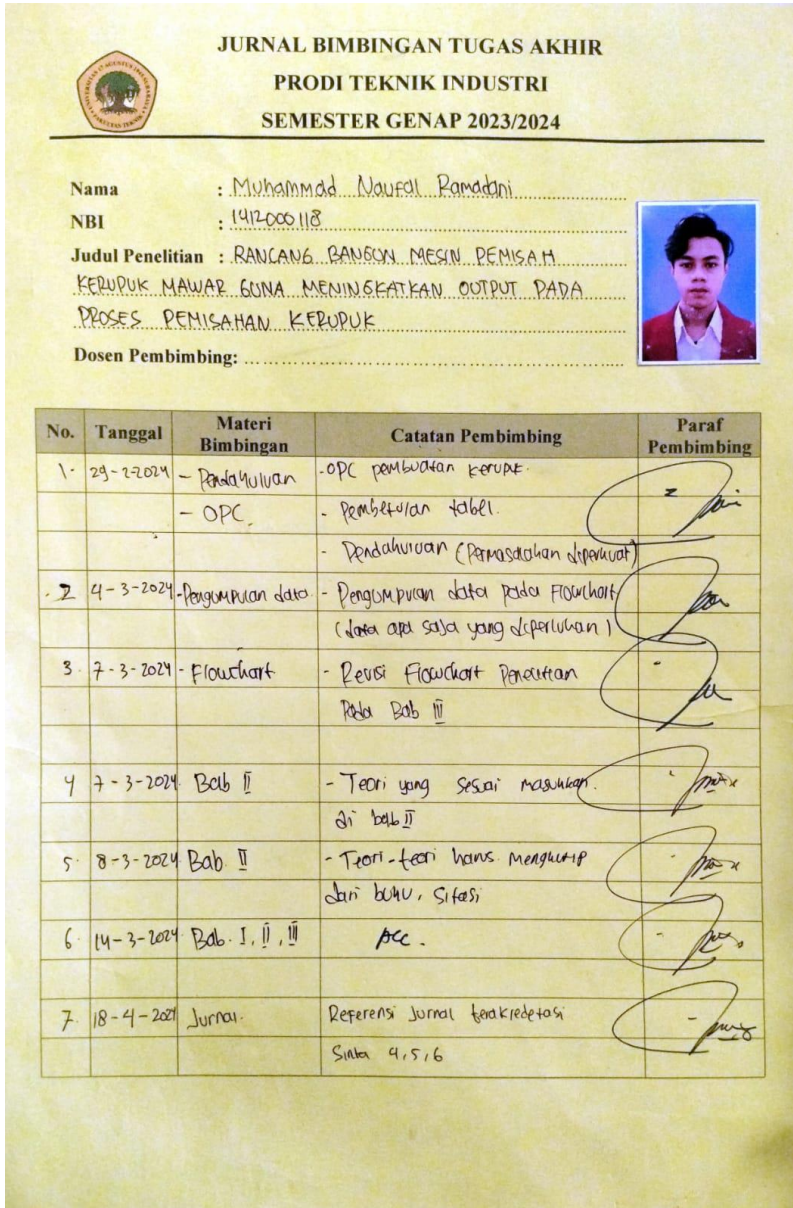 JURNAL BIMBINGAN TUGAS AKHIR
PRODI TEKNIK INDUSTRI
SEMESTER GENAP 2023/2024
Nama : Muhammad Naufal Ramadani
NBI : 1412000118
Judul Penelitian : RANCANG BANGUN MESIN PEMISAH
KERUPUK MAWAR GUNA MENINGKATKAN OUTPUT PADA
PROSES PEMISAHAN KERUPUK
Dosen Pembimbing: ..........
No. Tanggal Materi Bimbingan Catatan Pembimbing Paraf Pembimbing
1. 29-2-2024 - Pendahuluan - OPC pembuatan kerupuk.
- OPC - Pembetulan tabel.
- Pendahuluan (Permasalahan diperkuat)
2 4-3-2024 - Pengumpulan data - Pengumpulan data pada Flowchart
(data apa saja yang diperlukan)
3. 7-3-2024 - Flowchart - Revisi Flowchart Penelitian
Pada Bab III
4 7-3-2024 Bab II - Teori yang sesuai masukkan
di bab II
5. 8-3-2024 Bab II - Teori-teori harus mengkutip
dari buku, sitasi
6. 14-3-2024 Bab. I, II, III ACC.
7. 18-4-2024 Jurnal. Referensi Jurnal terakredetasi
Sinta 4,5,6